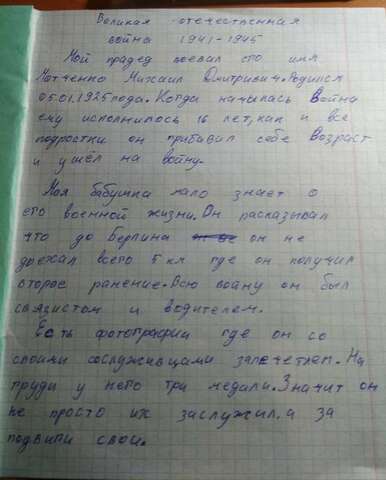 Великая отечественная
война 1941-1945
Мой прадед воевал его имя
Матченко Михаил Дмитриевич. Родился
05.01.1925 года. Когда началась Война
ему исполнилось 16 лет, как и все
подростки он прибавил себе возраст
и ушёл на войну.
Моя бабушка мало знает о
его военной жизни. Он расказывал
что до Берлина он не
доехал всего 5 км где он получил
второе ранение. Всю войну он был
связистом и водителем.
Есть фотографии где он со
своими сослуживцами запечетлен. На
груди у него три медали. Значит он
не просто их заслужил. а за
подвиги свои.